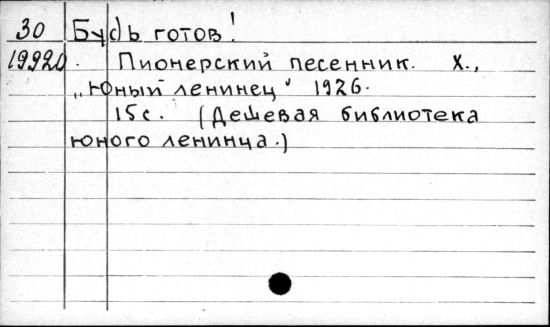 30 Будь готов!
19920. Пионерский песенник. Х.,
„Юный ленинец" 1926.
15 с. (Дешевая библиотека
юного ленинца.)